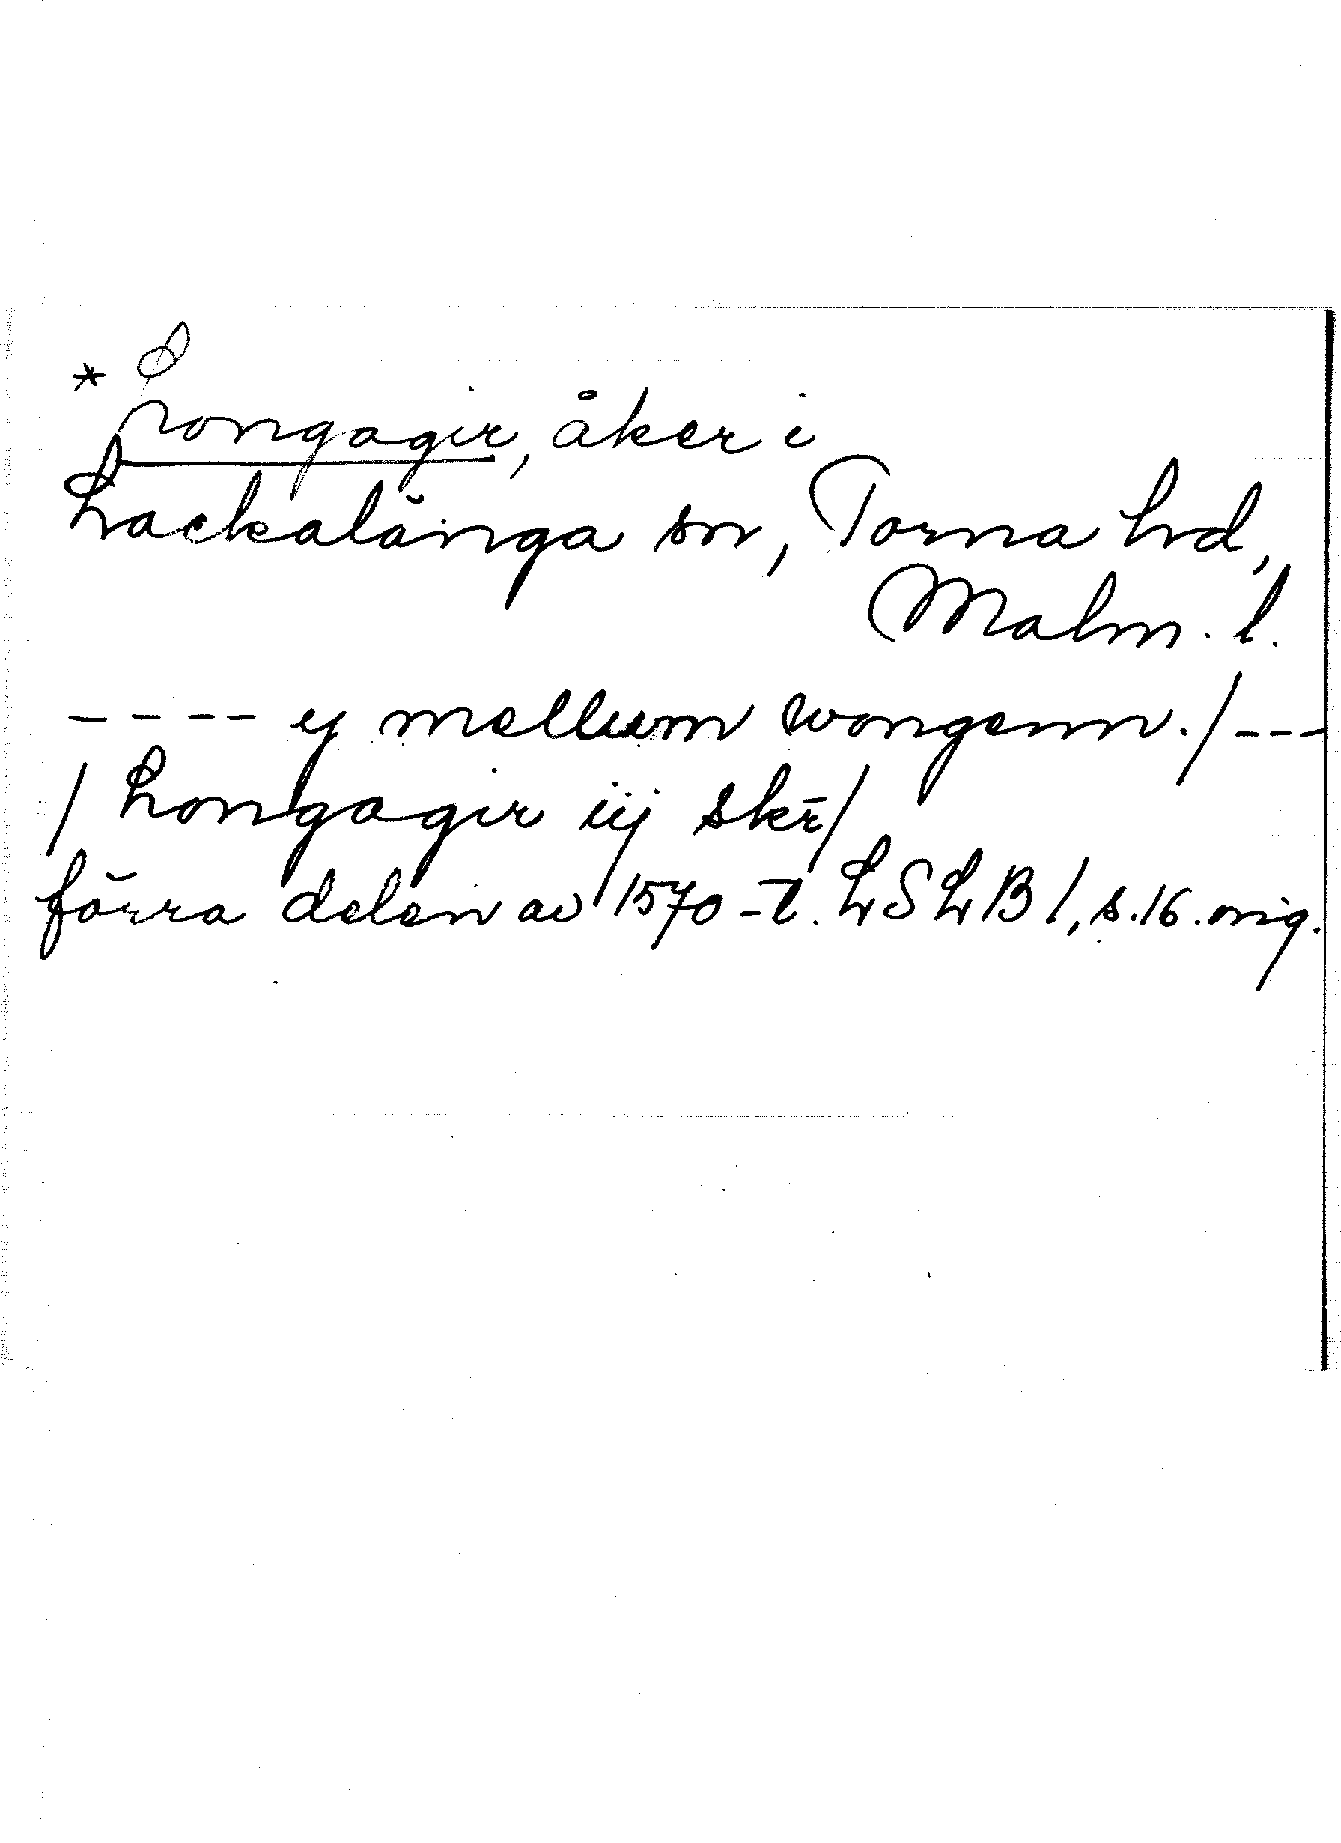 * Longagir, åker i
Lackalänga sn, Torna hd,
Malm. l.
---- ij mellum wongenn./---
/ Longagir iij skr̄/
förra delen av 1570-t. LSLB 1, s.16. orig.